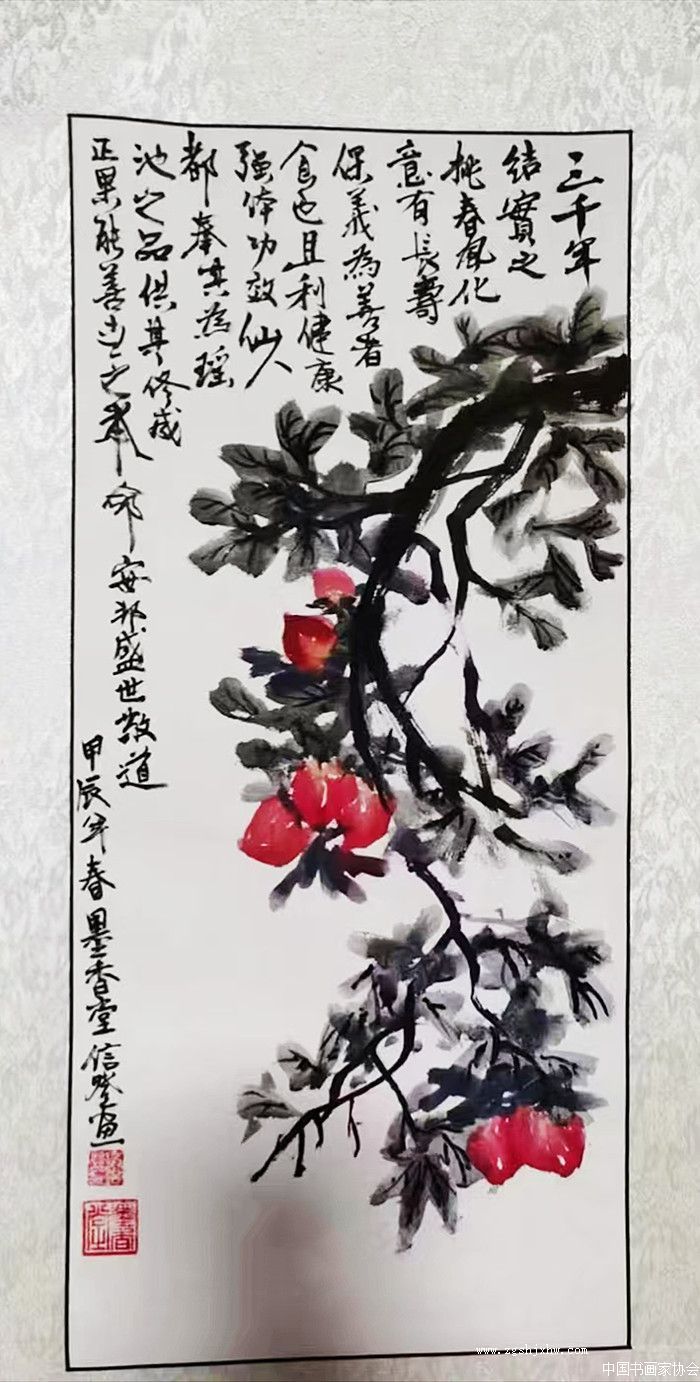 三千年
结實之
桃春風化
意有長壽
保義為善者
食也且利健康
强体功效仙人
都奉其為瑶
池之品供其修成
正果能善道之奉命
安邦盛世散道
甲辰年春墨香堂信
www.zgshjxhw.com
中国书画家协会